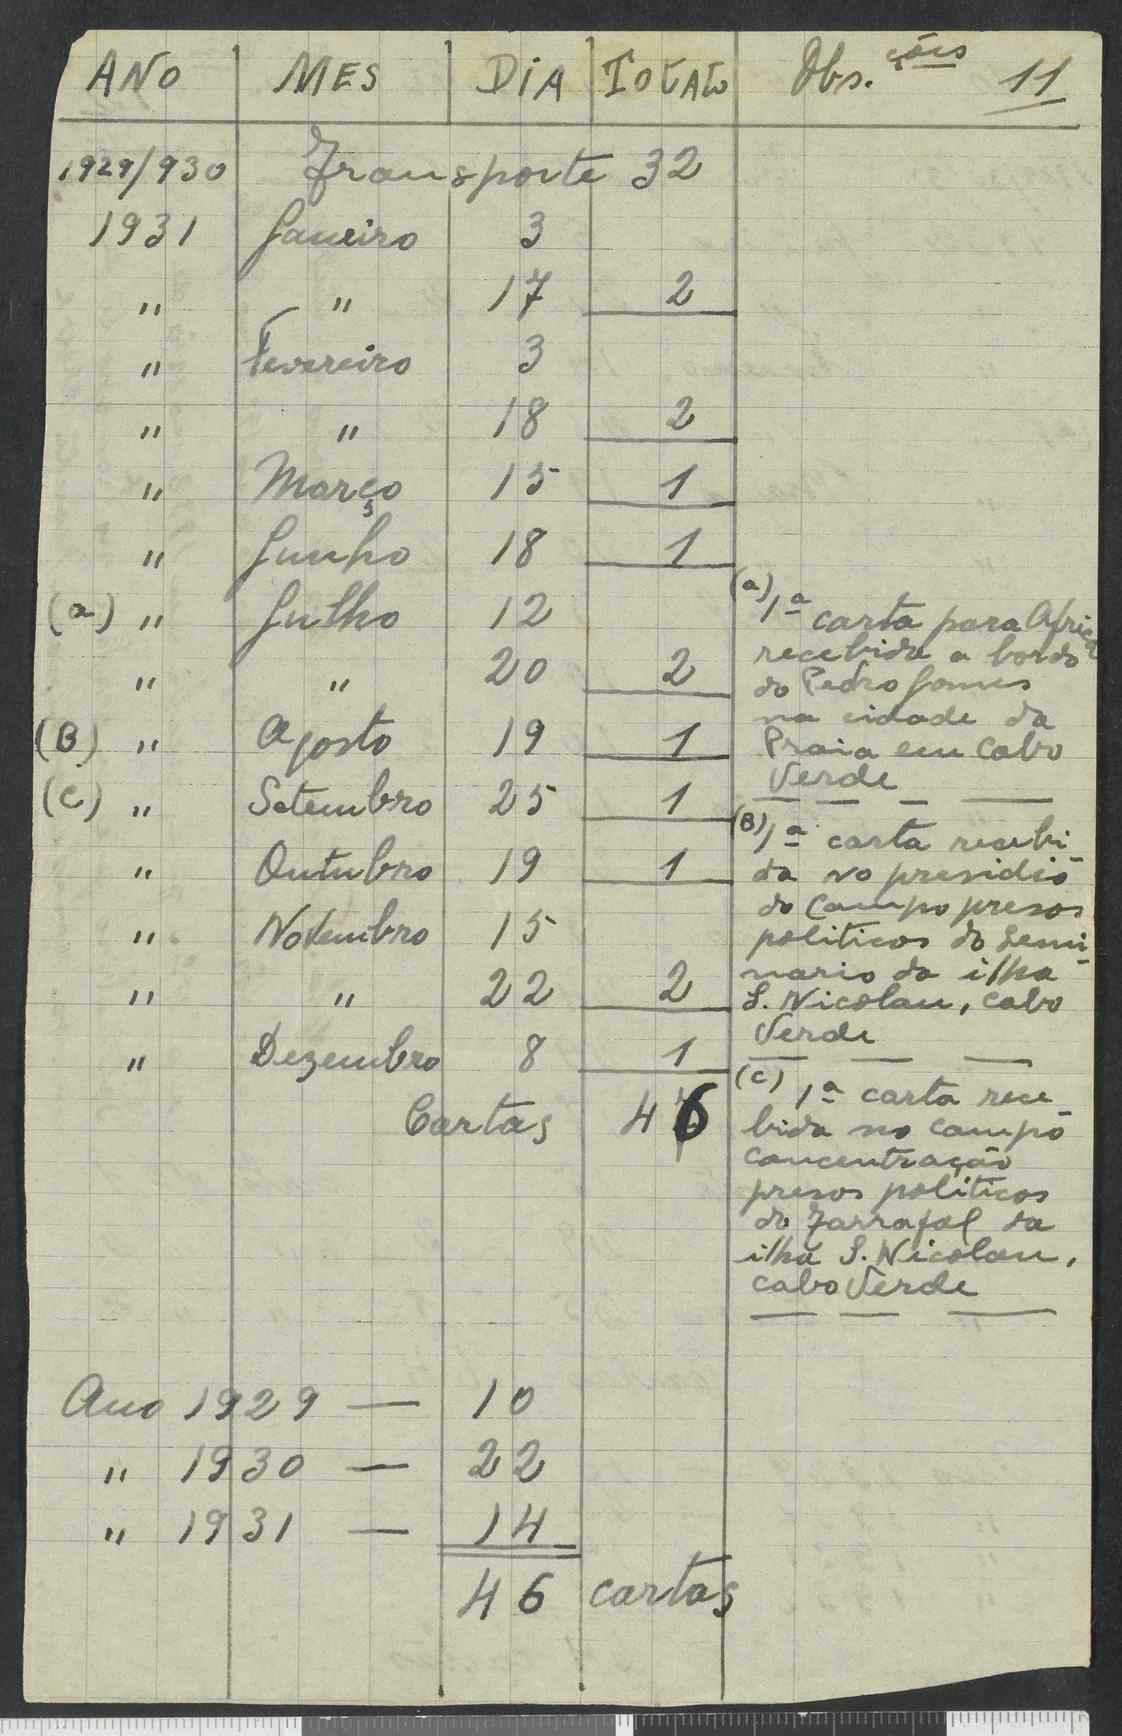 ANO MES DIA TOTAL Obs.ções 11
1929/930 Transporte 32
1931 Janeiro 3
" " 17 2
" Fevereiro 3
" " 18 2
" Março 15 1
" Junho 18 1
(a) " Julho 12
" " 20 2
(B) " Agosto 19 1
(C) " Setembro 25 1
" Outubro 19 1
" Novembro 15
" " 22 2
" Dezembro 8 1
Cartas 46
(a) 1ª carta para Africa
recebida a bordo
do Pedro Gomes
na cidade da
Praia em Cabo
Verde
(B) 1ª carta recebi-
da no presidio
do Campo presos
politicos do Semi-
nario da ilha
S. Nicolau, Cabo
Verde
(C) 1ª carta rece-
bida no campo
concentração
presos politicos
do Tarrafal da
ilha S. Nicolau,
Cabo Verde
Ano 1929 — 10
" 1930 — 22
" 1931 — 14
46 cartas